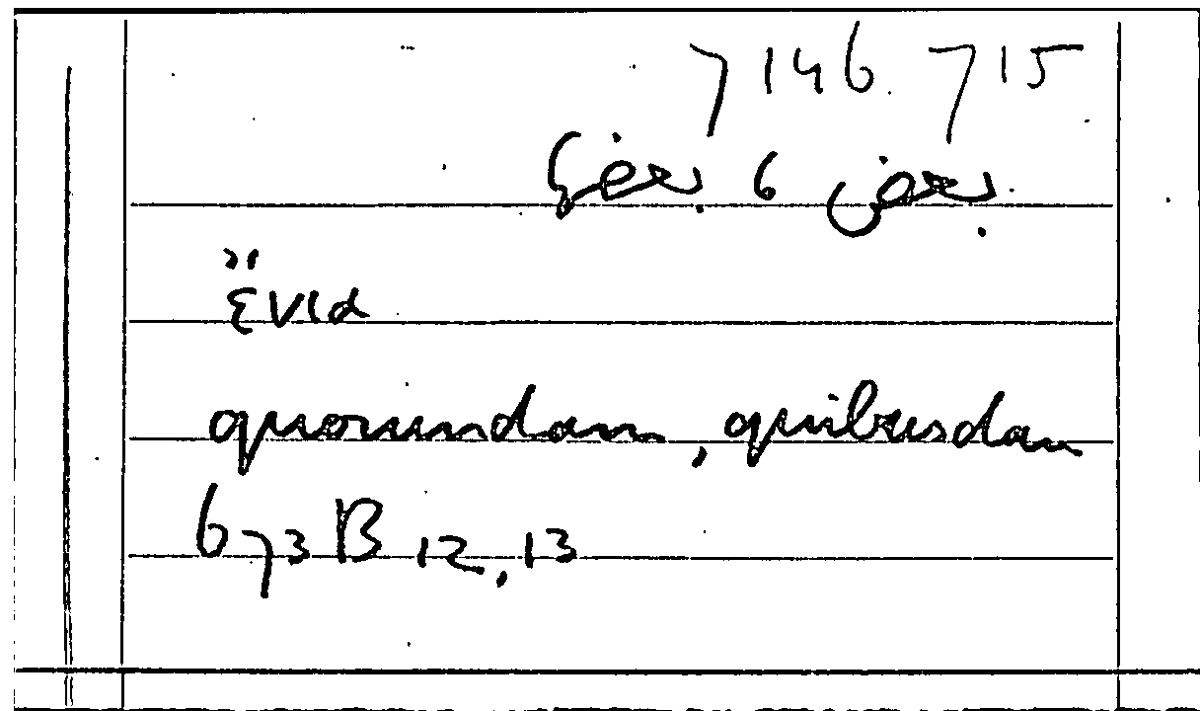 7146 715
بعض. 6 بعض.
ἔνια
quorundam, quibusdam
673 B 12, 13